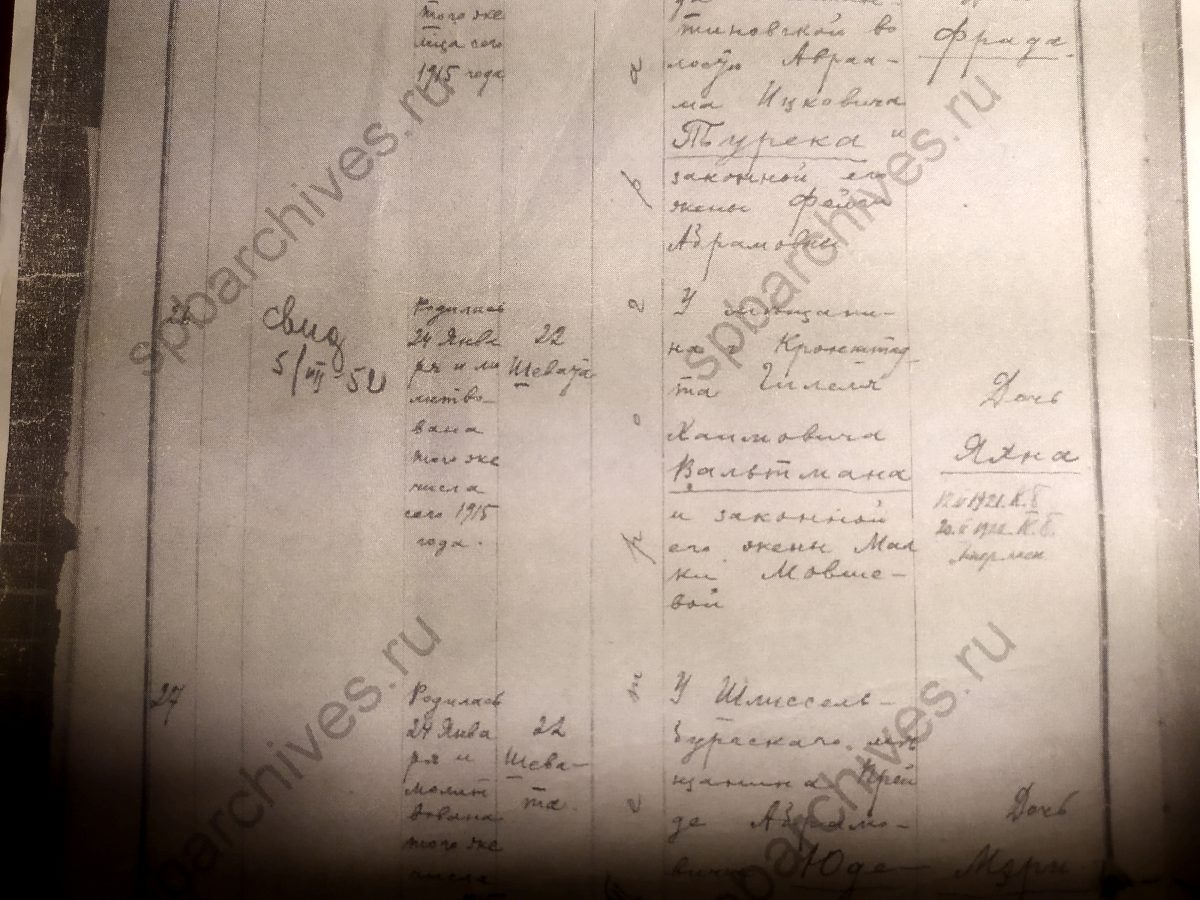 того же
м‍ца сего
1915 года
тиновской во
лости Авраа-
ма Ицковича
Турека и
законной его
жены Фейги
Абрамовны
Фрада.
26
свид
5/VII-52
Родилась
24 Янва
ря и мо
литво-
вана
того же
числа
сего 1915
года.
22
Шевата
У мещани-
на г. Кронштад
та Гилеля
Хаимовича
Вальтмана
и законной
его жены Мал
ки Мовше-
вой
Дочь
Яхна
27
Родилась
24 Янва
ря и
молит
вована
того же
числа
22
Шева-
та.
У Шлиссель-
бургскаго ме
щанина
де Абрамо-
вича Юде-
Дочь
Мэри
spbarchives.ru
spbarchives.ru
spbarchives.ru
spbarchives.ru